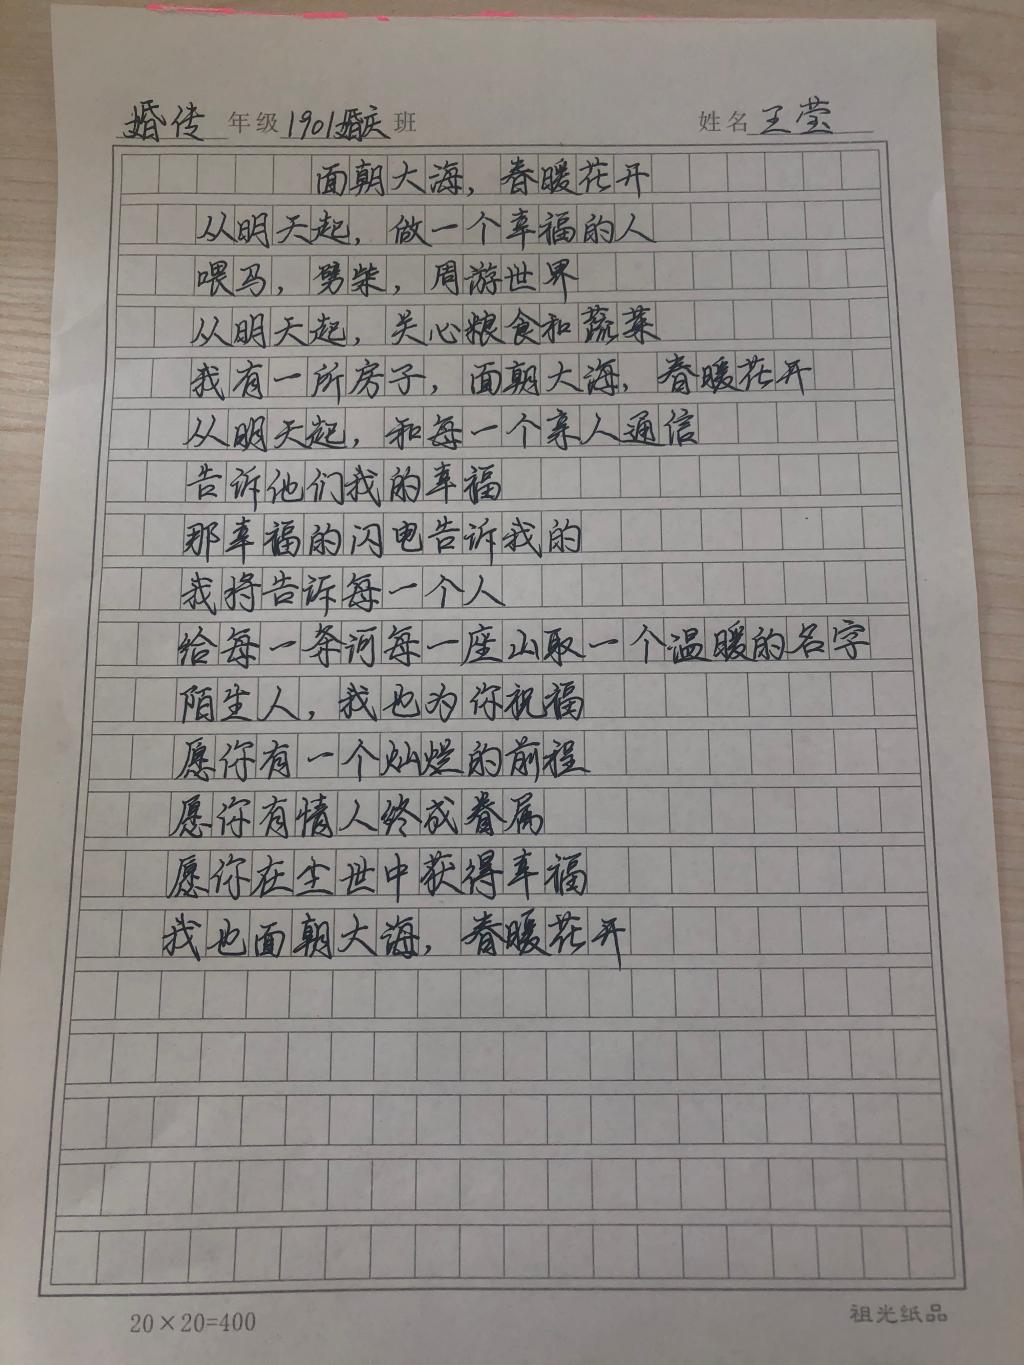 婚传 年级 1901婚庆 班 姓名 王莹
面朝大海，春暖花开
从明天起，做一个幸福的人
喂马，劈柴，周游世界
从明天起，关心粮食和蔬菜
我有一所房子，面朝大海，春暖花开
从明天起，和每一个亲人通信
告诉他们我的幸福
那幸福的闪电告诉我的
我将告诉每一个人
给每一条河每一座山取一个温暖的名字
陌生人，我也为你祝福
愿你有一个灿烂的前程
愿你有情人终成眷属
愿你在尘世中获得幸福
我也面朝大海，春暖花开
20×20=400 祖光纸品